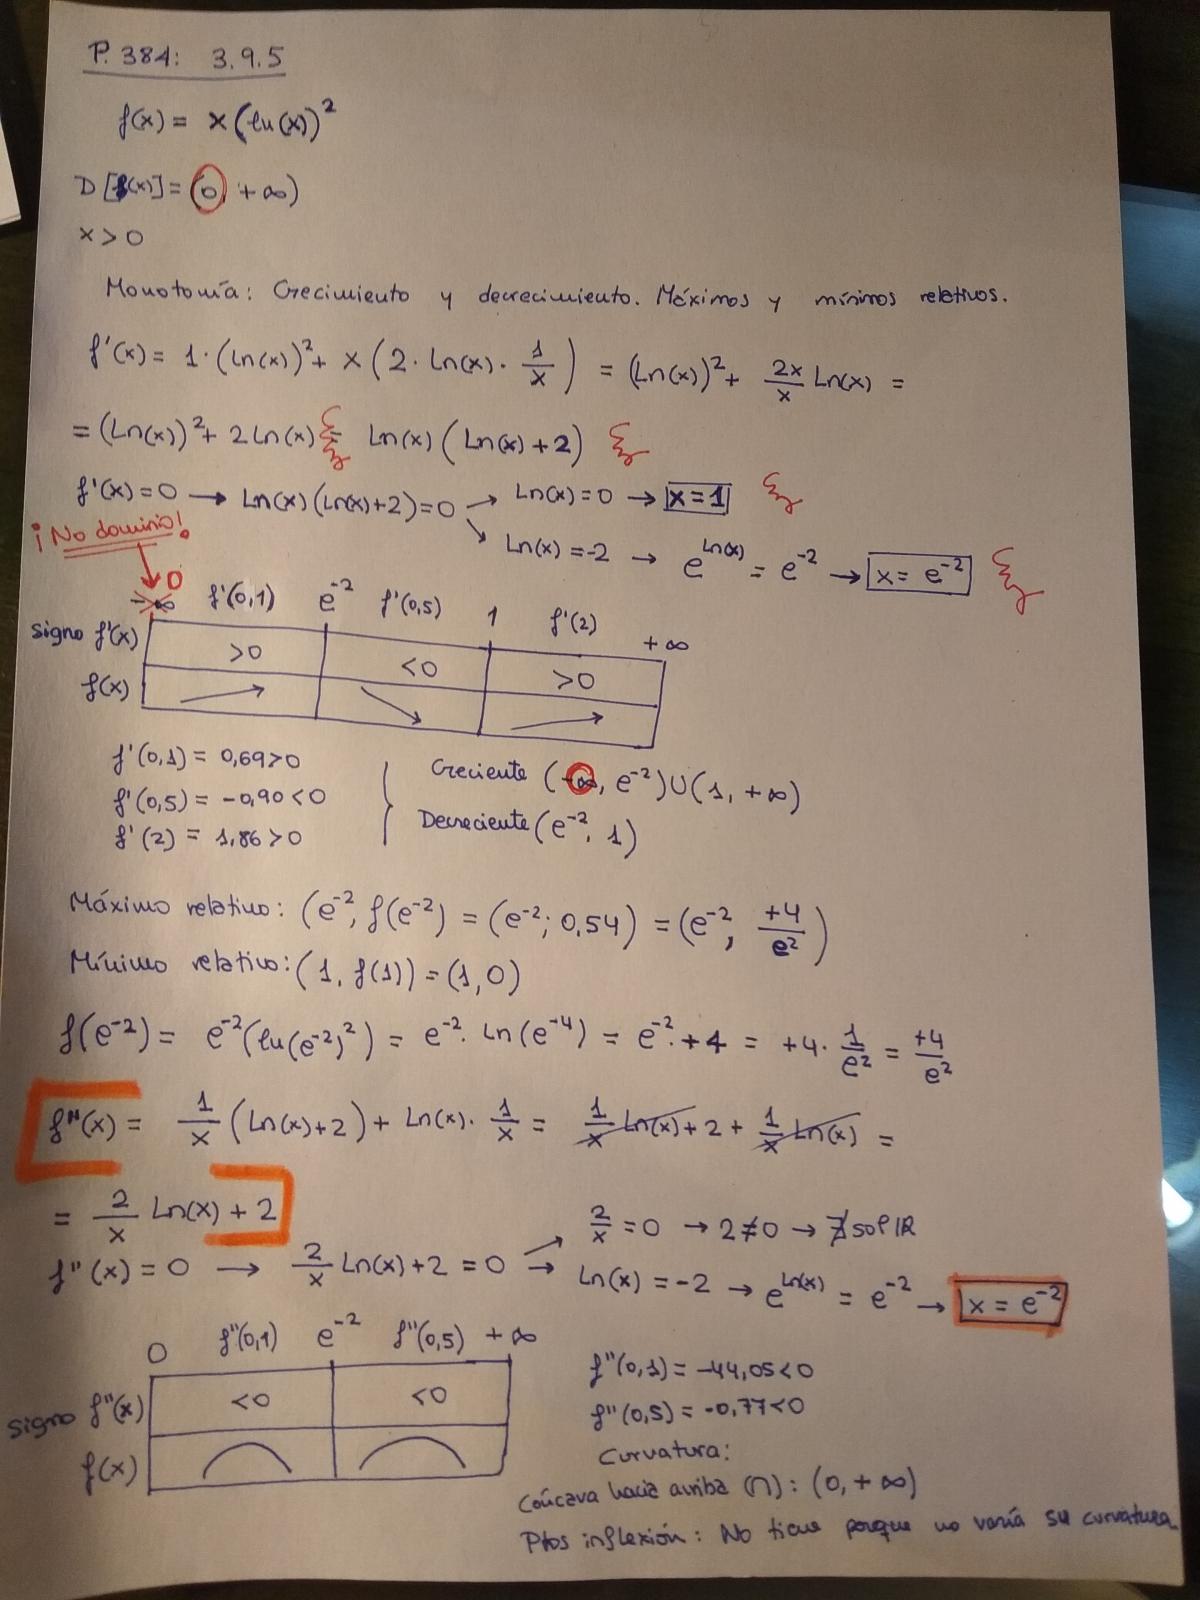 P. 384: 3.9.5
f(x) = x(ln(x))²
D [f(x)] = (0, +∞)
x > 0
Monotonía: Crecimiento y decrecimiento. Máximos y mínimos relativos.
f'(x) = 1·(Ln(x))² + x(2·Ln(x)·1/x) = (Ln(x))² + 2x/x Ln(x) =
= (Ln(x))² + 2Ln(x) = Ln(x)(Ln(x)+2)
f'(x) = 0 → Ln(x)(Ln(x)+2) = 0 → Ln(x) = 0 → x = 1
↘ Ln(x) = -2 → e^Ln(x) = e⁻² → x = e⁻²
¡No dominio!
0
-∞ f'(0,1) e⁻² f'(0,5) 1 f'(2) +∞
signo f'(x) >0 <0 >0
f(x)
f'(0,1) = 0,69>0
f'(0,5) = -0,90<0
f'(2) = 1,86>0
Creciente (-∞, e⁻²)U(1, +∞)
Decreciente (e⁻², 1)
Máximo relativo: (e⁻², f(e⁻²) = (e⁻²; 0,54) = (e⁻², +4/e²)
Mínimo relativo: (1, f(1)) = (1, 0)
f(e⁻²) = e⁻²(ln(e⁻²)²) = e⁻²· Ln(e⁻⁴) = e⁻²·+4 = +4·1/e² = +4/e²
f''(x) = 1/x (Ln(x)+2) + Ln(x)·1/x = 1/x Ln(x) + 2 + 1/x Ln(x) =
= 2/x Ln(x) + 2
f''(x) = 0 → 2/x Ln(x) + 2 = 0 → 2/x = 0 → 2 ≠ 0 → ∄ sol ℝ
→ Ln(x) = -2 → e^Ln(x) = e⁻² → x = e⁻²
0 f''(0,1) e⁻² f''(0,5) +∞
signo f''(x) <0 <0
f(x)
f''(0,1) = -44,05<0
f''(0,5) = -0,77<0
Curvatura:
Cóncava hacia arriba (∩): (0, +∞)
Ptos inflexión: No tiene porque no varía su curvatura.